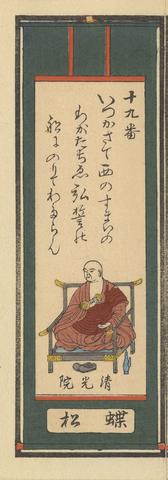 十九番
いつかさて西のすまゐの
わがたちゑ弘誓の
船にのりてわたらん
清光院
蝶松